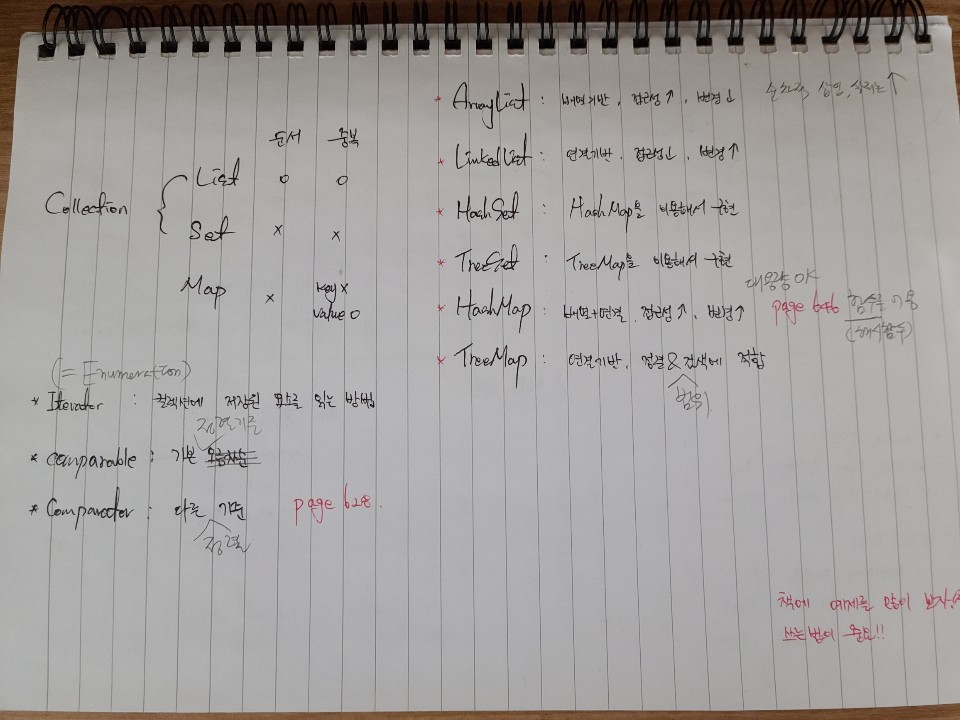 순서 중복
Collection
List o o
Set x x
Map x key x
value o
(= Enumeration)
* Iterator : 컬렉션에 저장된 요소를 읽는 방법
정렬기준
* comparable : 기본 오름차순
* Comparator : 다른 기준 page 628.
정렬
* ArrayList : 배열기반, 접근성↑, 변경↓ 순차적 삽입, 삭제는↑
* LinkedList : 연결기반, 접근성↓, 변경↑
* HashSet : HashMap을 이용해서 구현
* TreeSet : TreeMap을 이용해서 구현
대용량 OK
* HashMap : 배열+연결, 접근성↑, 변경↑ page 646 함수를 이용
(해시함수)
* TreeMap : 연결기반, 정렬&검색에 적합
범위
책에 예제를 많이 보자!
쓰는법이 중요!!